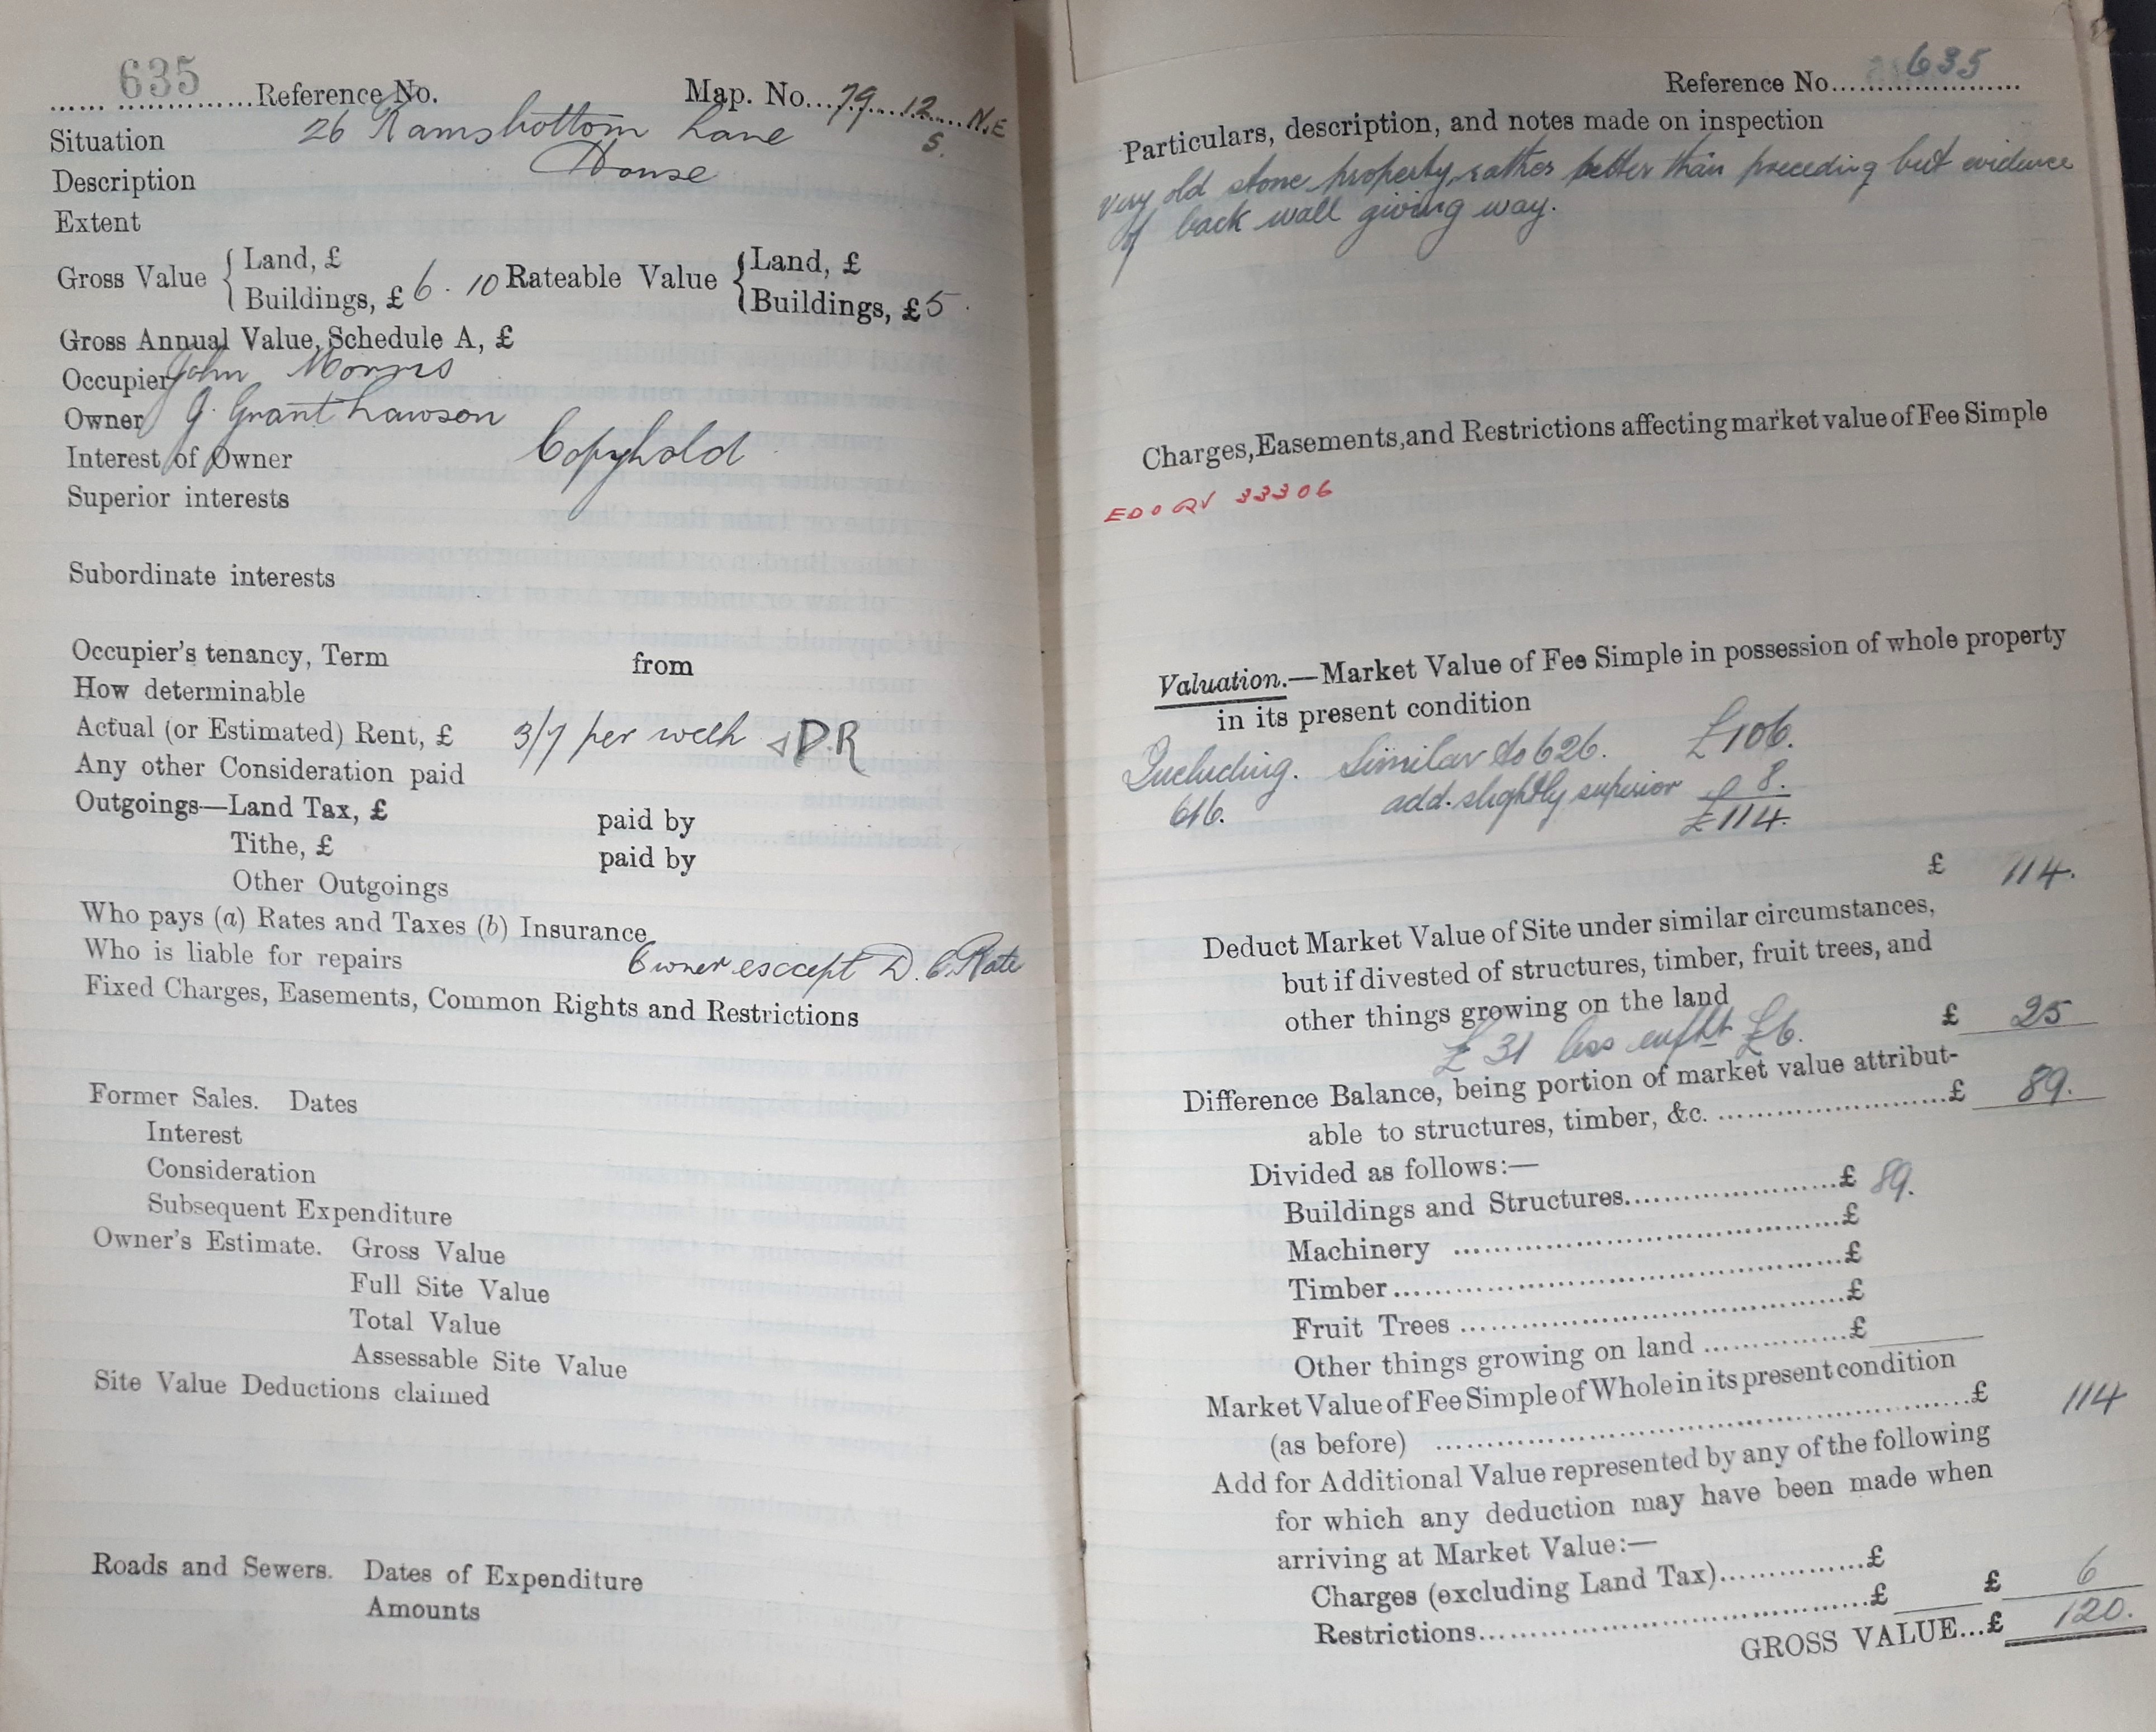 635 Reference No. Map. No. 79 12 N.E
S.
Situation 26 Ramsbottom Lane
Description House
Extent
Gross Value { Land, £ Rateable Value { Land, £
Buildings, £ 6 . 10 Buildings, £ 5 .
Gross Annual Value, Schedule A, £
Occupier John Morris
Owner G. Grant Lawson
Interest of Owner Copyhold
Superior interests
Subordinate interests
Occupier's tenancy, Term from
How determinable
Actual (or Estimated) Rent, £ 3/7 per week D.R
Any other Consideration paid
Outgoings—Land Tax, £ paid by
Tithe, £ paid by
Other Outgoings
Who pays (a) Rates and Taxes (b) Insurance
Who is liable for repairs Owner except D. C. Rate
Fixed Charges, Easements, Common Rights and Restrictions
Former Sales. Dates
Interest
Consideration
Subsequent Expenditure
Owner's Estimate. Gross Value
Full Site Value
Total Value
Assessable Site Value
Site Value Deductions claimed
Roads and Sewers. Dates of Expenditure
Amounts
Reference No. 635
Particulars, description, and notes made on inspection
Very old stone property, rather better than preceding but evidence
of back wall giving way.
Charges, Easements, and Restrictions affecting market value of Fee Simple
33306
Valuation.—Market Value of Fee Simple in possession of whole property
in its present condition
Including. Similar to 626. £106.
616. add. slightly superior £ 8.
£114.
£ 114.
Deduct Market Value of Site under similar circumstances,
but if divested of structures, timber, fruit trees, and
other things growing on the land
£31 less enfht £6. £ 25
Difference Balance, being portion of market value attribut-
able to structures, timber, &c. £ 89.
Divided as follows:—
Buildings and Structures £ 89.
Machinery £
Timber £
Fruit Trees £
Other things growing on land £
Market Value of Fee Simple of Whole in its present condition
(as before) £ 114
Add for Additional Value represented by any of the following
for which any deduction may have been made when
arriving at Market Value:—
Charges (excluding Land Tax) £
Restrictions £ £ 6
GROSS VALUE...£ 120.